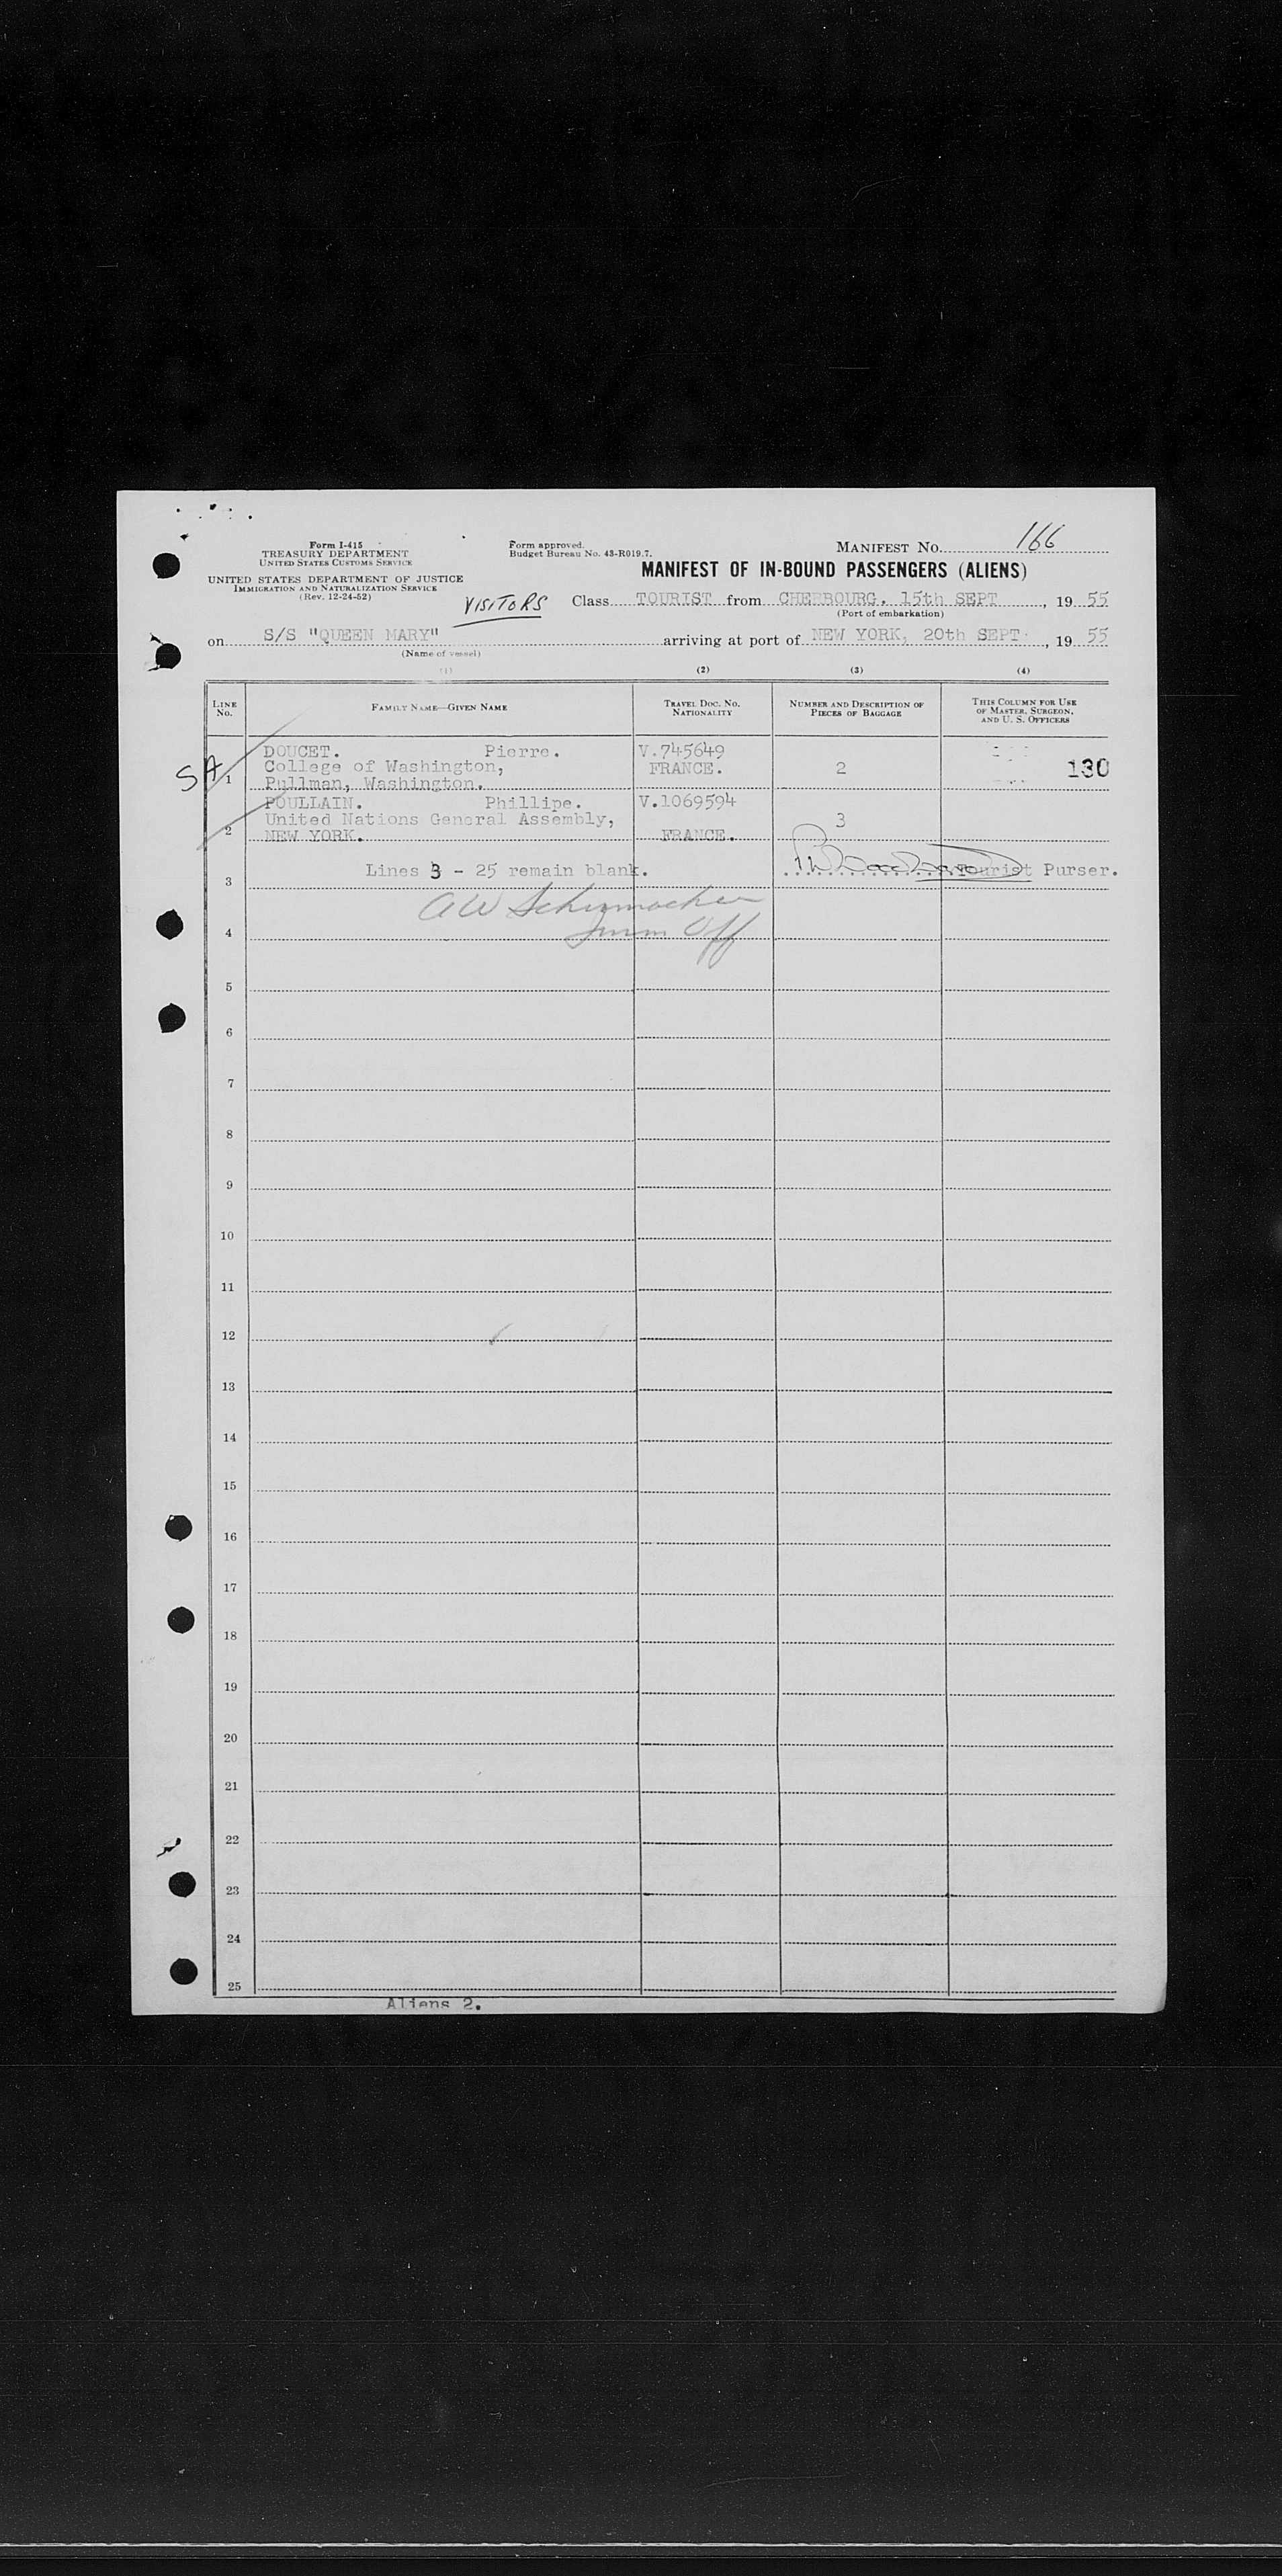 Form I-415
TREASURY DEPARTMENT
UNITED STATES CUSTOMS SERVICE
UNITED STATES DEPARTMENT OF JUSTICE
IMMIGRATION AND NATURALIZATION SERVICE
(Rev. 12-24-52)
Form approved.
Budget Bureau No. 43-R019.7.
MANIFEST NO. 166
MANIFEST OF IN-BOUND PASSENGERS (ALIENS)
VISITORS
Class TOURIST from CHERBOURG. 15th SEPT, 1955
(Port of embarkation)
on S/S "QUEEN MARY" arriving at port of NEW YORK, 20th SEPT., 1955
(Name of vessel)
(1) (2) (3) (4)
LINE NO. FAMILY NAME—GIVEN NAME TRAVEL DOC. NO. NATIONALITY NUMBER AND DESCRIPTION OF PIECES OF BAGGAGE THIS COLUMN FOR USE OF MASTER, SURGEON, AND U. S. OFFICERS
SA
1 DOUCET. Pierre. V.745649
College of Washington, FRANCE. 2 130
Pullman, Washington.
2 POULLAIN. Phillipe. V.1069594
United Nations General Assembly, 3
NEW YORK. FRANCE.
3 Lines 3 - 25 remain blank. Tourist Purser.
AW Schumacher
4 Imm Off
5
6
7
8
9
10
11
12
13
14
15
16
17
18
19
20
21
22
23
24
25
Aliens 2.